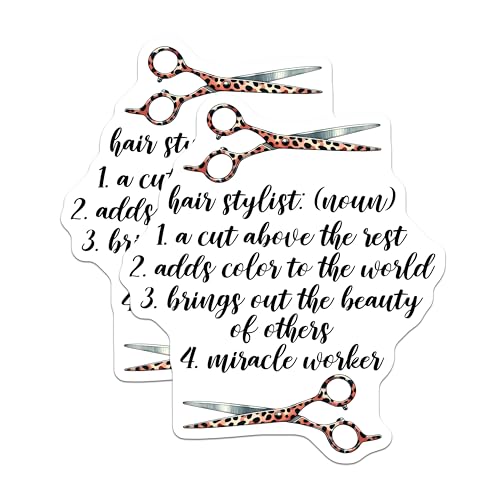 hair sty
1. a cut
2. adds
3. br
4
hair stylist: (noun)
1. a cut above the rest
2. adds color to the world
3. brings out the beauty
of others
4. miracle worker